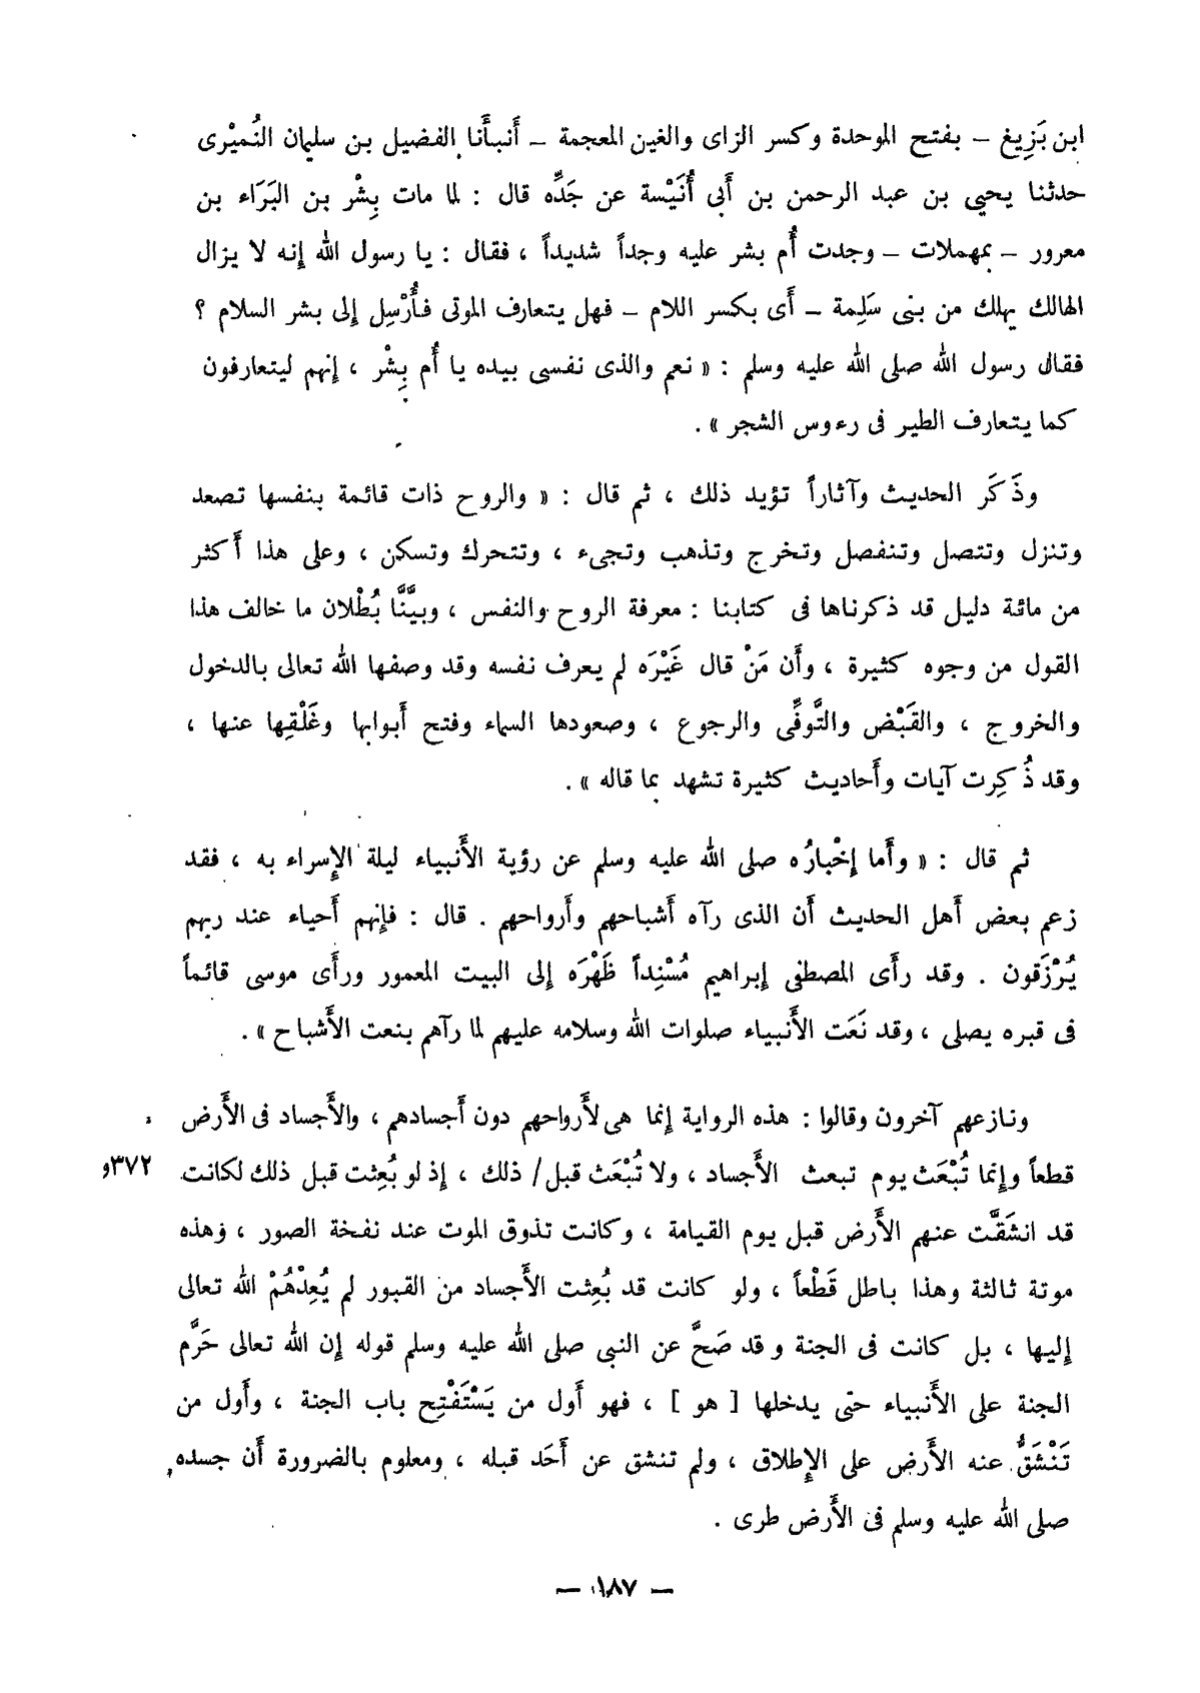 ابن بَزِيغ – بفتح الموحدة وكسر الزاى والغين المعجمة – أَنبأَنا الفضيل بن سليمان النُميْرى
حدثنا يحيى بن عبد الرحمن بن أَبى أُنَيْسة عن جَدِّه قال : لما مات بِشْر بن البَرَاء بن
معرور – بمهملات – وجدت أُم بشر عليه وجداً شديداً ، فقال : يا رسول الله إنه لا يزال
الهالك يهلك من بنى سَلِمة – أَى بكسر اللام – فهل يتعارف الموتى فأُرْسِل إلى بشر السلام ؟
فقال رسول الله صلى الله عليه وسلم : « نعم والذى نفسى بيده يا أُم بِشْر ، إنهم ليتعارفون
كما يتعارف الطير فى رءوس الشجر » .
وذَكَر الحديث وآثاراً تؤيد ذلك ، ثم قال : « والروح ذات قائمة بنفسها تصعد
وتنزل وتتصل وتنفصل وتخرج وتذهب وتجىء ، وتتحرك وتسكن ، وعلى هذا أَكثر
من مائة دليل قد ذكرناها فى كتابنا : معرفة الروح والنفس ، وبيَّنَّا بُطْلان ما خالف هذا
القول من وجوه كثيرة ، وأَن مَنْ قال غَيْرَه لم يعرف نفسه وقد وصفها الله تعالى بالدخول
والخروج ، والقَبْض والتَّوفِّى والرجوع ، وصعودها السماء وفتح أَبوابها وغَلْقِها عنها ،
وقد ذُكِرت آيات وأَحاديث كثيرة تشهد بما قاله » .
ثم قال : « وأَما إخْبارُه صلى الله عليه وسلم عن رؤية الأَنبياء ليلة الإسراء به ، فقد
زعم بعض أَهل الحديث أَن الذى رآه أَشباحهم وأَرواحهم . قال : فإنهم أَحياء عند ربهم
يُرْزَقون . وقد رأَى المصطفى إبراهيم مُسْنِداً ظَهْرَه إلى البيت المعمور ورأَى موسى قائماً
فى قبره يصلى ، وقد نَعَت الأَنبياء صلوات الله وسلامه عليهم لما رآهم بنعت الأَشباح » .
ونازعهم آخرون وقالوا : هذه الرواية إنما هى لأَرواحهم دون أَجسادهم ، والأَجساد فى الأَرض
قطعاً وإنما تُبْعَث يوم تبعث الأَجساد ، ولا تُبْعَث قبل / ذلك ، إذ لو بُعِثت قبل ذلك لكانت ٣٧٢و
قد انشَقَّت عنهم الأَرض قبل يوم القيامة ، وكانت تذوق الموت عند نفخة الصور ، وهذه
موتة ثالثة وهذا باطل قَطْعاً ، ولو كانت قد بُعِثت الأَجساد من القبور لم يُعِدْهُمْ الله تعالى
إليها ، بل كانت فى الجنة وقد صَحَّ عن النبى صلى الله عليه وسلم قوله إن الله تعالى حَرَّم
الجنة على الأَنبياء حتى يدخلها [ هو ] ، فهو أَول من يَسْتَفْتِح باب الجنة ، وأَول من
تَنْشَقُّ عنه الأَرض على الإطلاق ، ولم تنشق عن أَحَد قبله ، ومعلوم بالضرورة أَن جسده
صلى الله عليه وسلم فى الأَرض طرى .
– ١٨٧ –